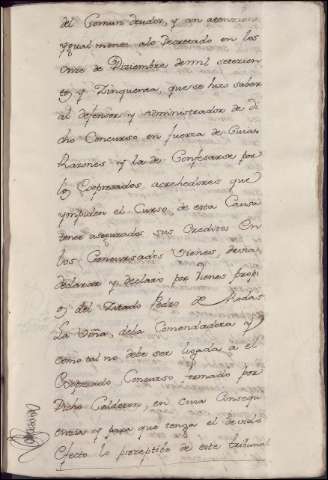 del Comun deudor, y en atencion
ygualmente alo Decretado en los
Onze de Diziembre de mil setezien
tos y Zinquenta, que se hizo saber
al defensor y Administrador de di
cho Concurso en fuerza de cuias
Razones y la de Confesarse por
los Expresados acrehedores que
ympiden el Curso de esta Causa
tener asegurados sus Creditos en
los Concursados Vienes, devia
declarar y declaro por Vienes propi
os del Zitado Pedro de Rodas
La Viña, dela Comendadora y
como tal no debe ser ligada á el
Referido Concurso formado por
Dicho Calderon, en cuia Consequ
enzia y para que tenga el devido
efecto lo prezeptido de este tribunal